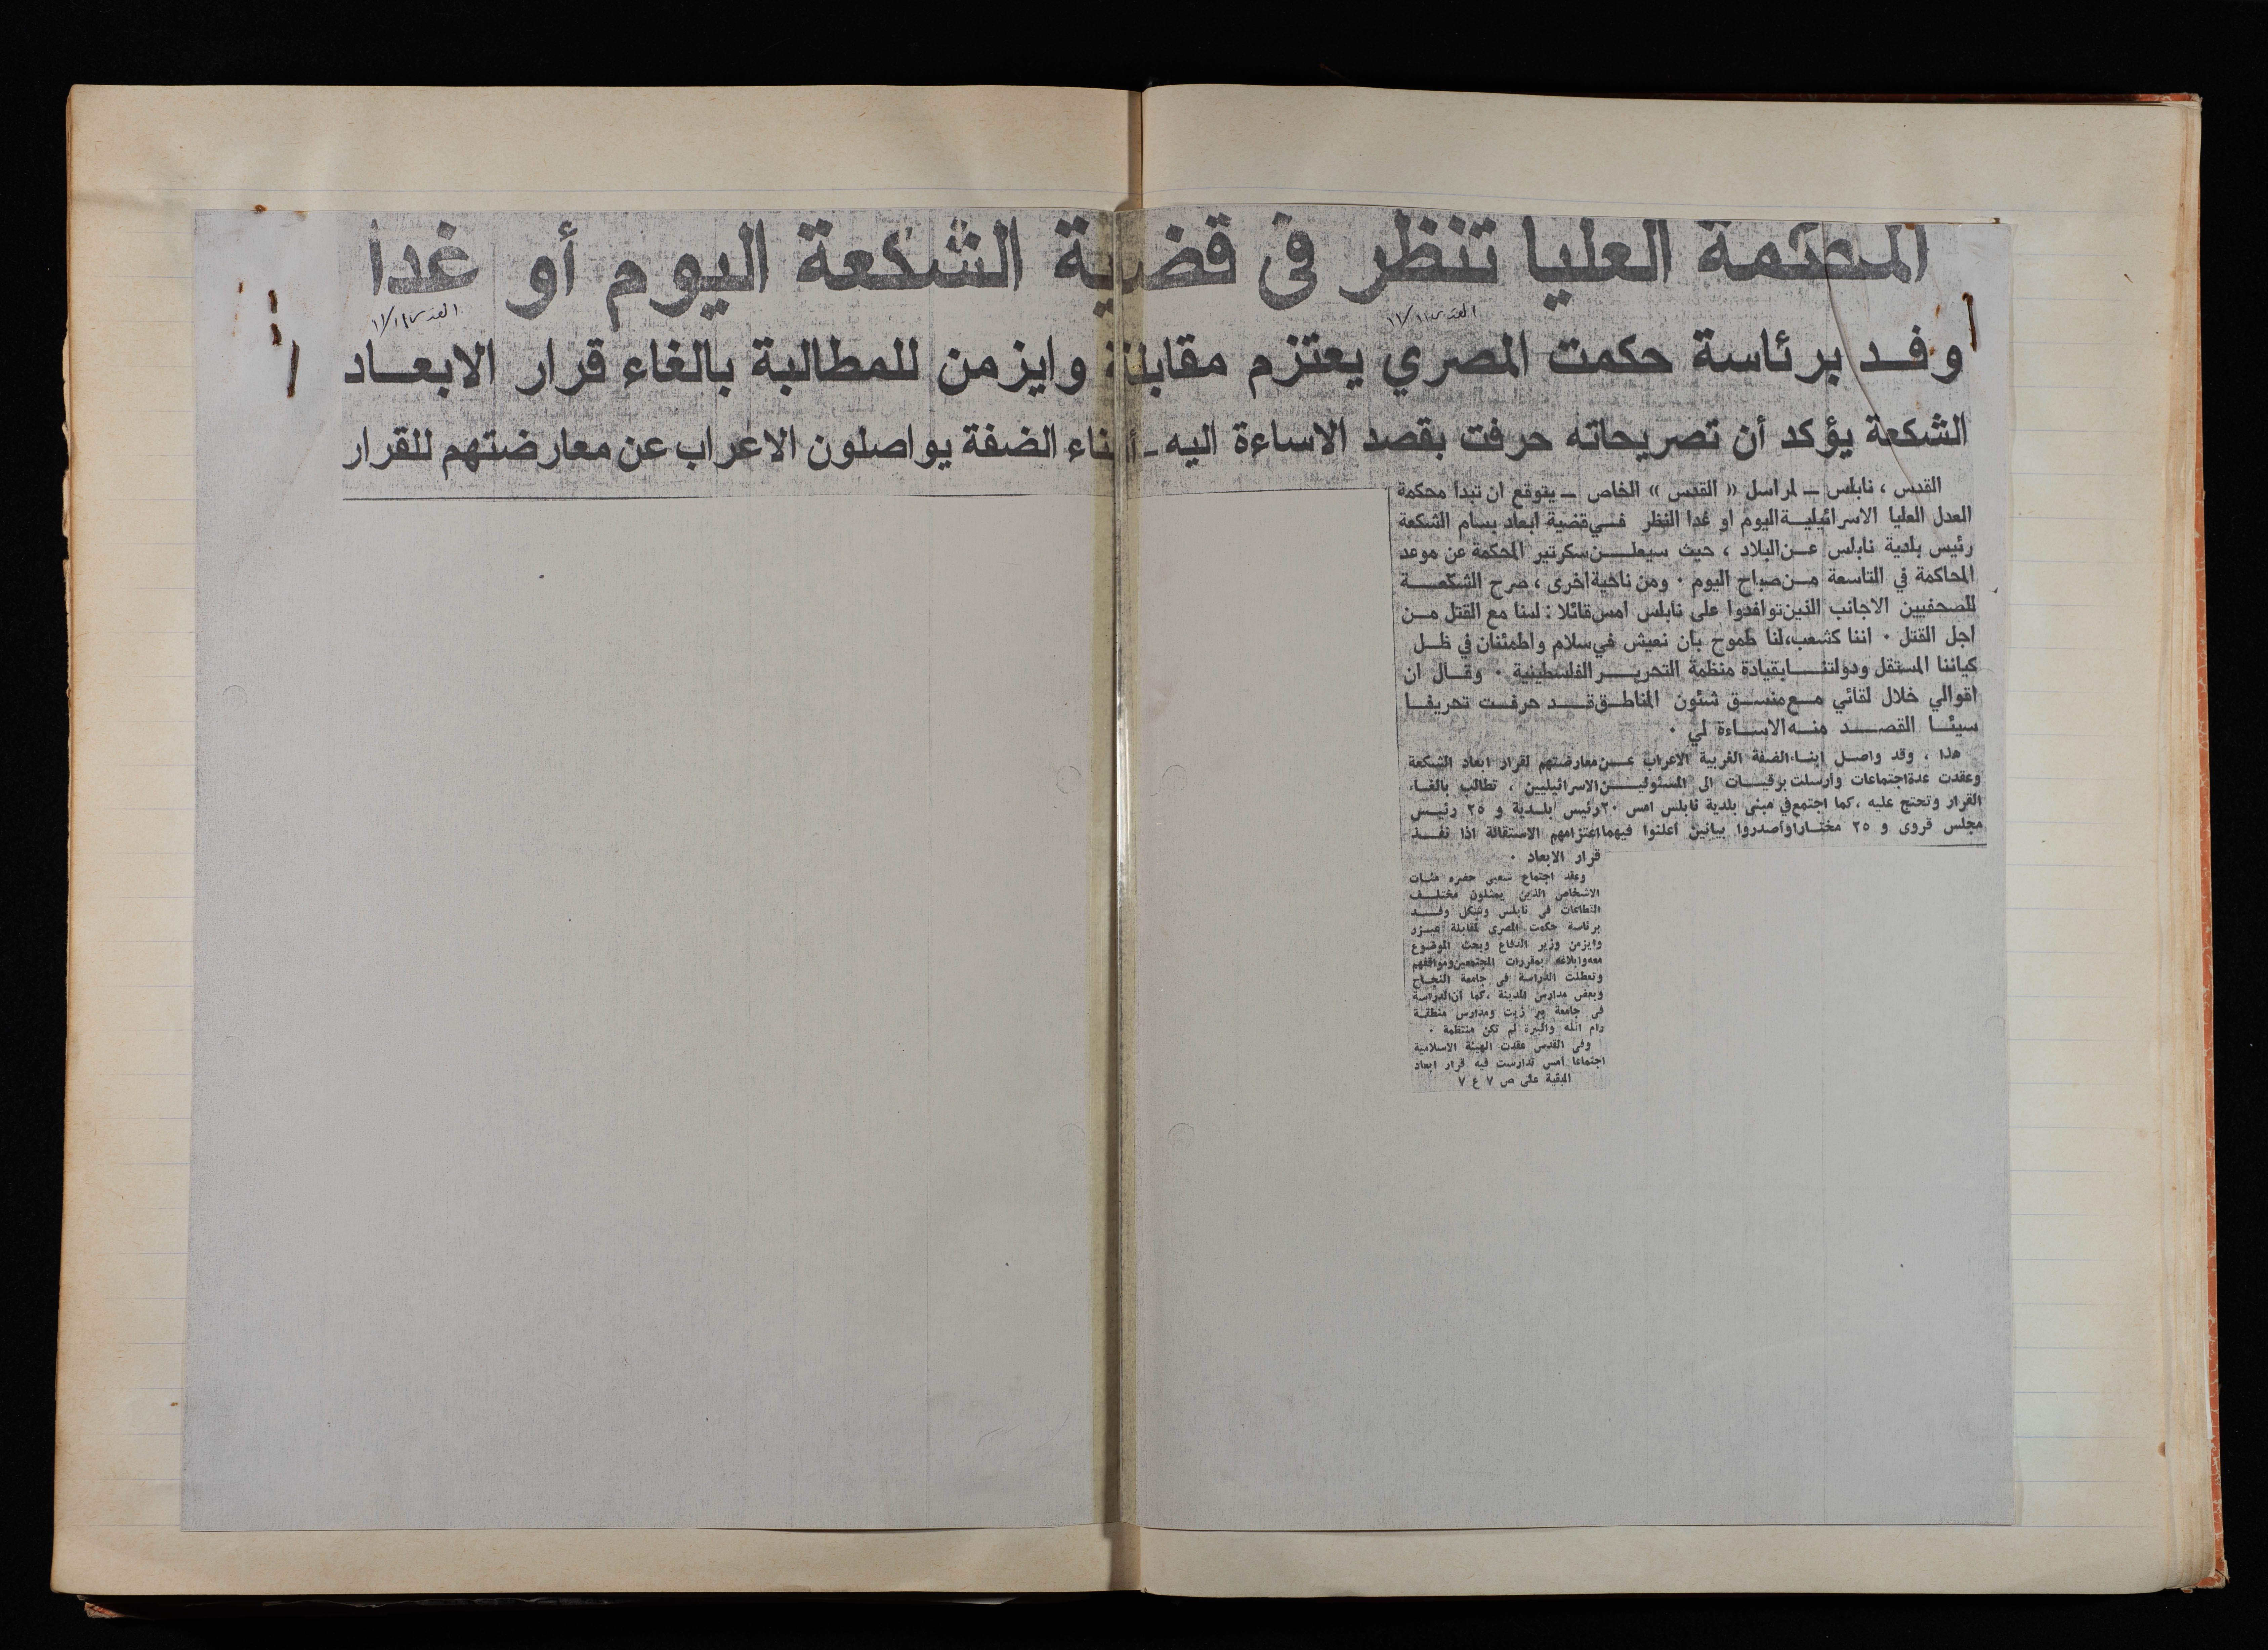 المحكمة العليا تنظر في قضية الشكعة اليوم أو غدا
القدس ١١/١٢
القدس ١١/١٢
وفد برئاسة حكمت المصري يعتزم مقابلة وايزمن للمطالبة بالغاء قرار الابعاد
الشكعة يؤكد أن تصريحاته حرفت بقصد الاساءة اليه - أبناء الضفة يواصلون الاعراب عن معارضتهم للقرار
القدس ، نابلس - لمراسل « القدس » الخاص - يتوقع ان تبدا محكمة
العدل العليا الاسرائيلية اليوم او غدا النظر في قضية ابعاد بسام الشكعة
رئيس بلدية نابلس عن البلاد ، حيث سيعلن سكرتير المحكمة عن موعد
المحاكمة في التاسعة من صباح اليوم . ومن ناحية اخرى ، صرح الشكعة
للصحفيين الاجانب الذين توافدوا على نابلس امس قائلا : لسنا مع القتل من
اجل القتل . اننا كشعب، لنا طموح بان نعيش في سلام واطمئنان في ظل
كياننا المستقل ودولتنا بقيادة منظمة التحرير الفلسطينية . وقال ان
اقوالي خلال لقائي مع منسق شئون المناطق قد حرفت تحريفا
سيئا القصد منه الاساءة لي .
هذا ، وقد واصل ابناء الضفة الغربية الاعراب عن معارضتهم لقرار ابعاد الشكعة
وعقدت عدة اجتماعات وأرسلت برقيات الى المسئولين الاسرائيليين ، تطالب بالغاء
القرار وتحتج عليه ، كما اجتمع في مبنى بلدية نابلس امس ٢٠ رئيس بلدية و ٢٥ رئيس
مجلس قروى و ٢٥ مختارا وأصدروا بيانين أعلنوا فيهما اعتزامهم الاستقالة اذا نفذ
قرار الابعاد .
وعقد اجتماع شعبى حضره مئات
الاشخاص الذين يمثلون مختلف
القطاعات فى نابلس وشكل وفد
برئاسة حكمت المصرى لمقابلة عيزر
وايزمن وزير الدفاع وبحث الموضوع
معه وابلاغه بمقررات المجتمعين ومواقفهم
وتعطلت الدراسة فى جامعة النجاح
وبعض مدارس المدينة ، كما أن الدراسة
فى جامعة بير زيت ومدارس منطقة
رام الله والبيرة لم تكن منتظمة .
وفى القدس عقدت الهيئة الاسلامية
اجتماعا أمس تدارست فيه قرار ابعاد
البقية على ص ٧ ع ٧